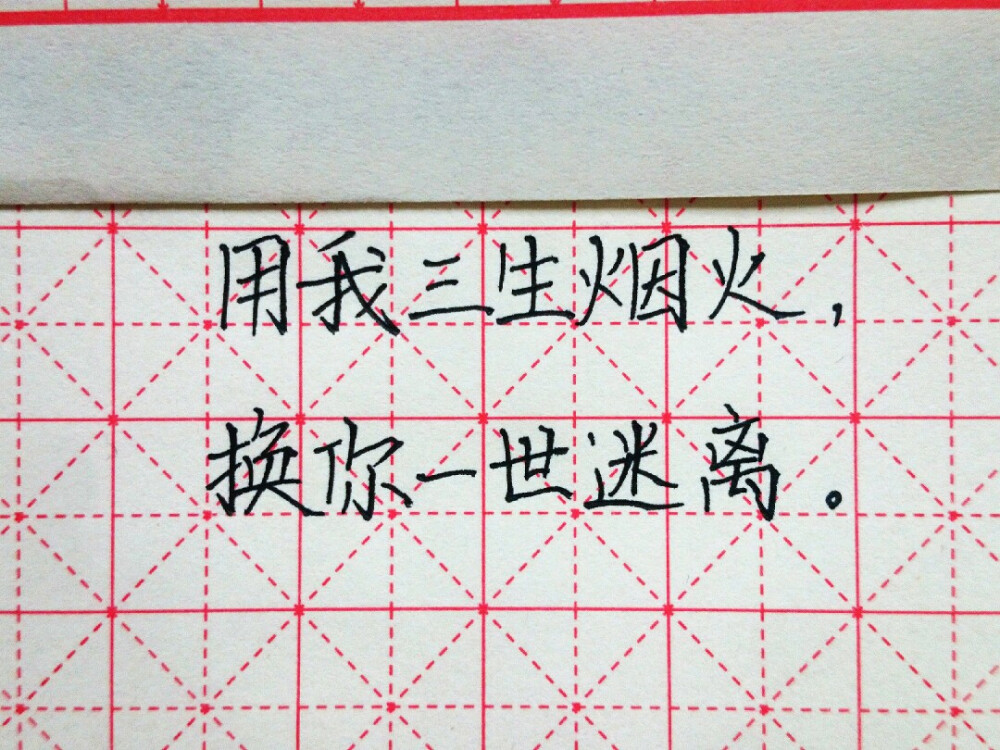 用我三生烟火，
换你一世迷离。